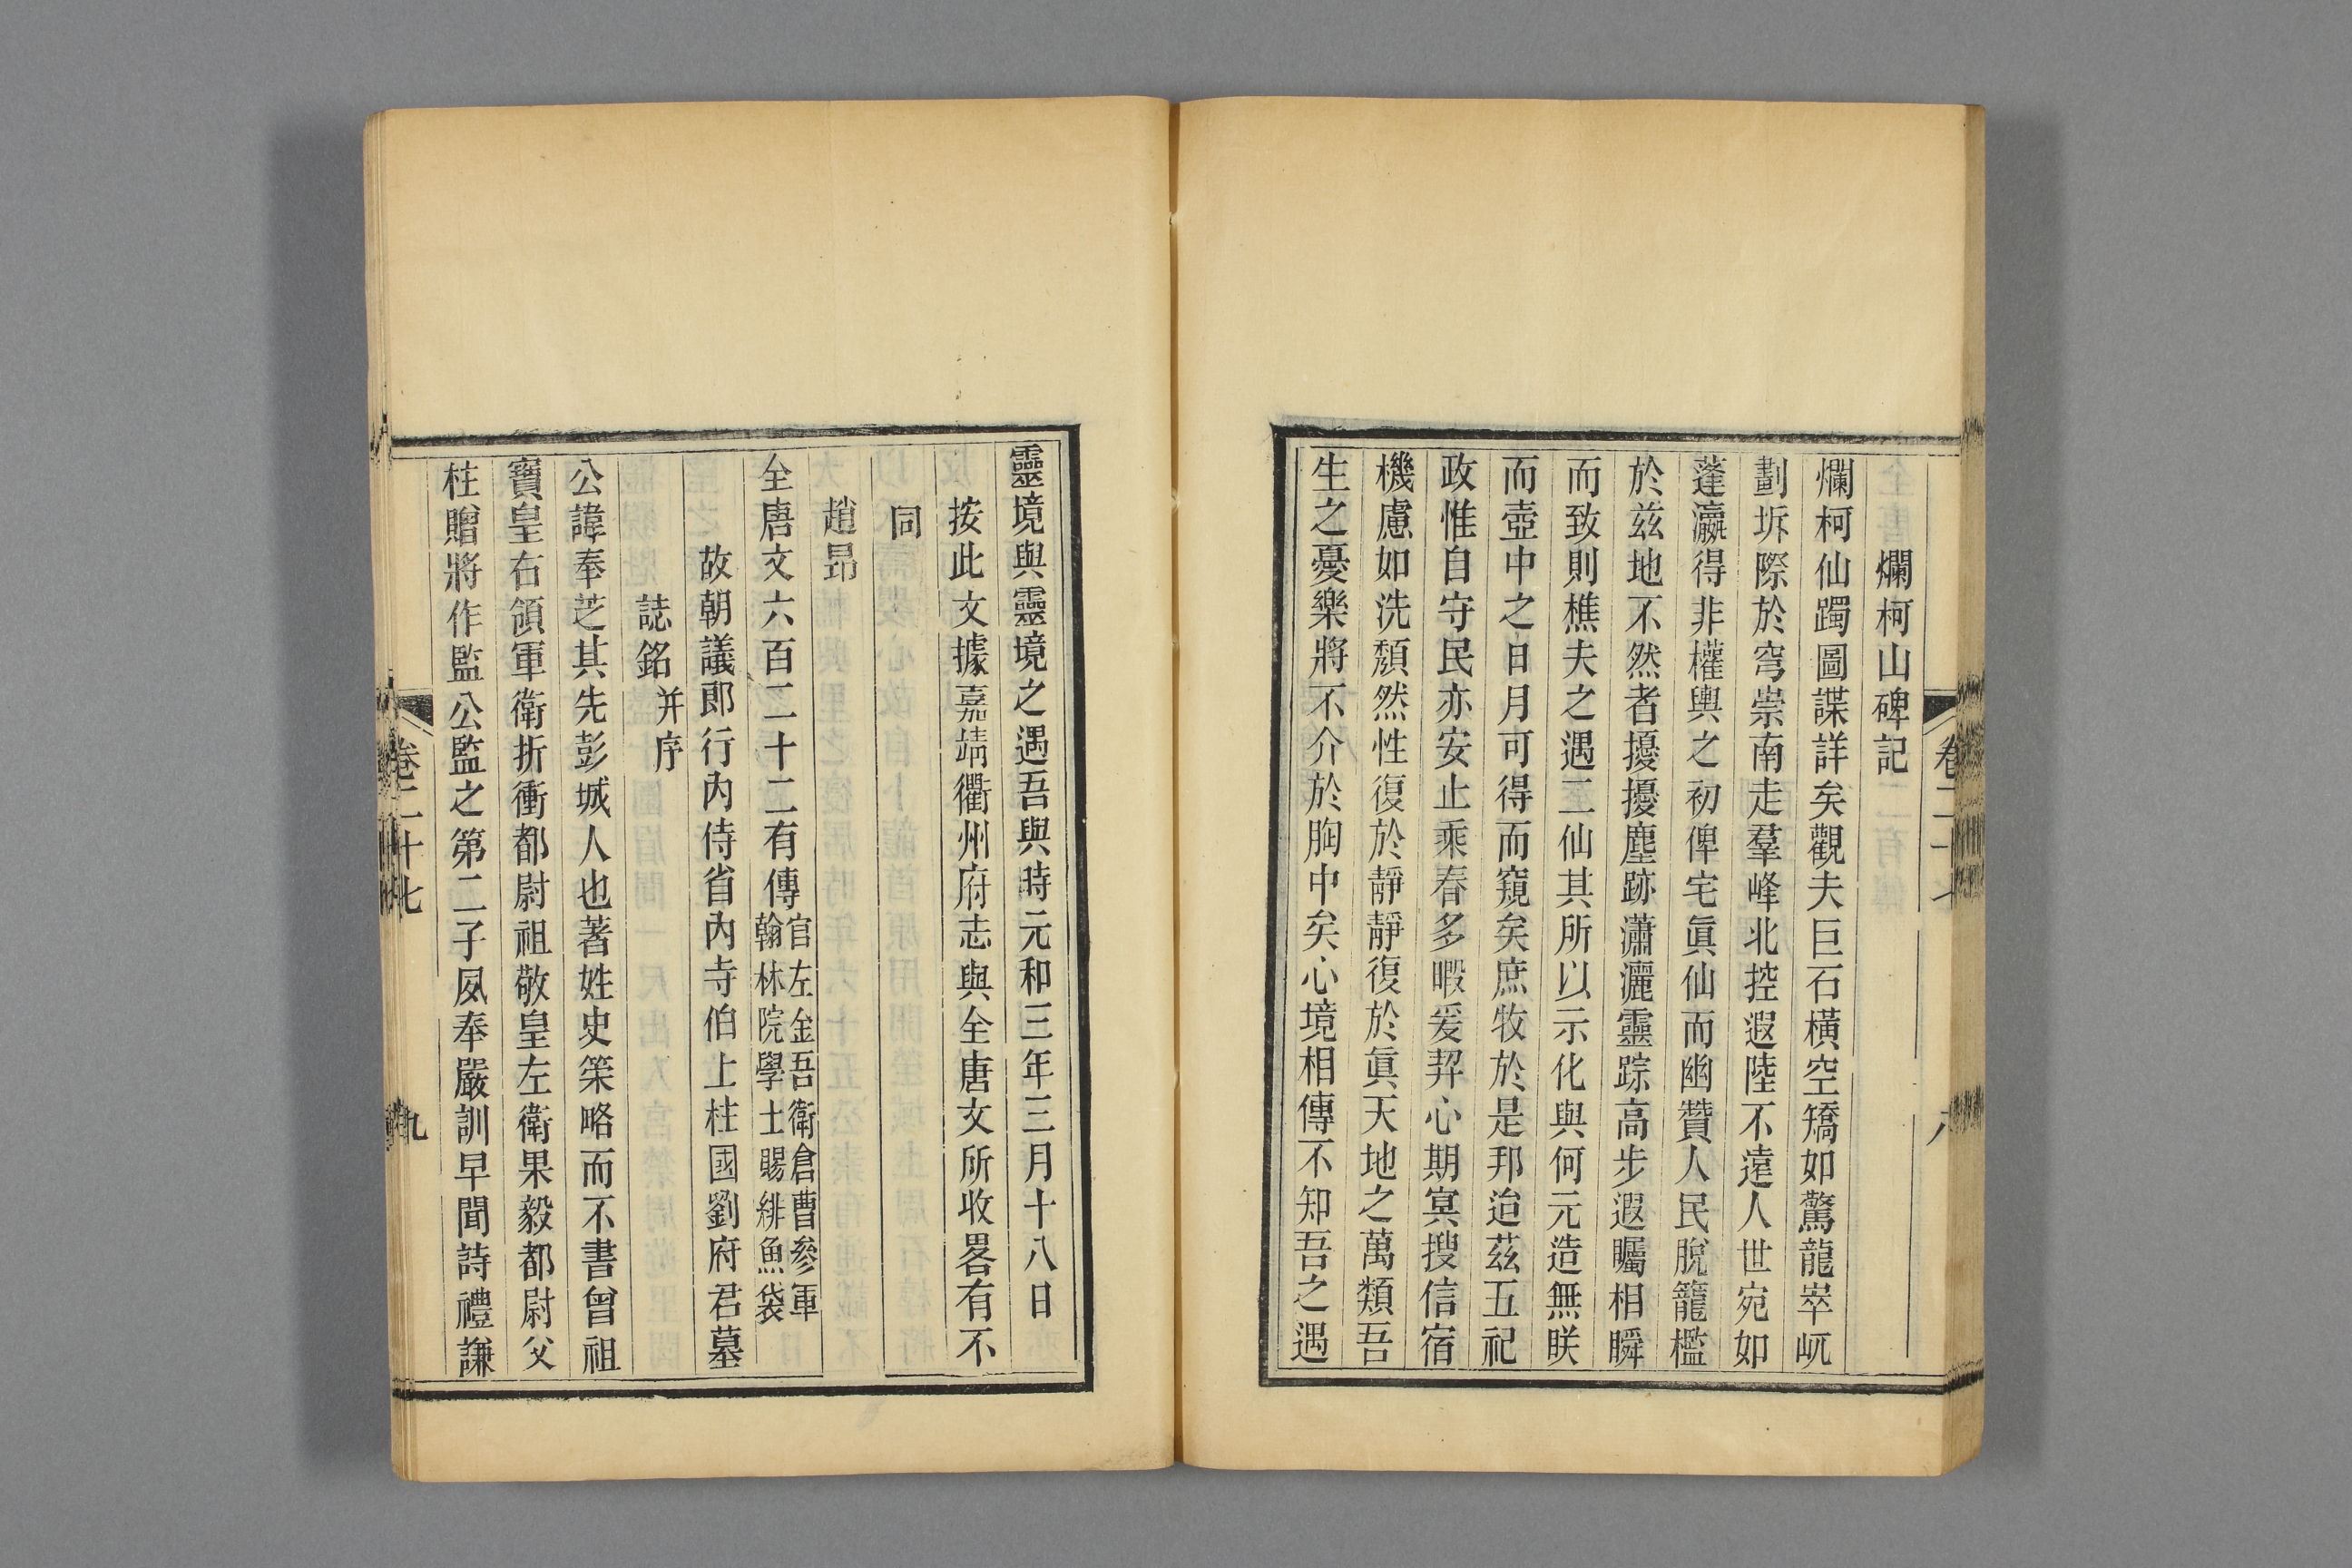 爛柯山碑記
爛柯仙躅圖諜詳矣觀夫巨石橫空矯如驚龍崒屼
劃坼際於穹崇南走羣峰北控遐陸不遠人世宛如
蓬瀛得非權輿之初俾宅眞仙而幽贊人民脫籠檻
於茲地不然者擾擾塵跡瀟灑靈踪高步遐矚相瞬
而致則樵夫之遇二仙其所以示化與何元造無眹
而壺中之日月可得而窺矣庶牧於是邦迨茲五祀
政惟自守民亦安止乘春多暇爰契心期冥搜信宿
機慮如洗頹然性復於靜靜復於眞天地之萬類吾
生之憂樂將不介於胸中矣心境相傳不知吾之遇
靈境與靈境之遇吾與時元和三年三月十八日
按此文據嘉靖衢州府志與全唐文所收畧有不
同
趙昂
全唐文六百二十二有傳官左金吾衛倉曹參軍
翰林院學士賜緋魚袋
故朝議郎行內侍省內寺伯上柱國劉府君墓
誌銘并序
公諱奉芝其先彭城人也著姓史策略而不書曾祖
寶皇右領軍衛折衝都尉祖敬皇左衛果毅都尉父
柱贈將作監公監之第二子夙奉嚴訓早聞詩禮謙
卷二十七
九